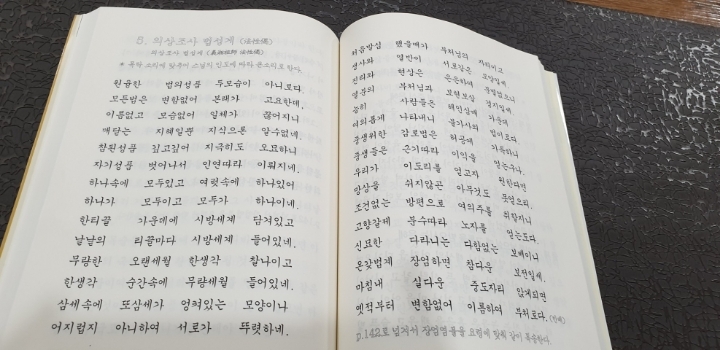 8. 의상조사 법성게 (法性偈)
의상조사 법성게 (義湘祖師 法性偈)
* 목탁 소리에 맞추어 스님의 인도에 따라 큰소리로 한다.
원융한 법의성품 두모습이 아니로다.
모든법은 변함없어 본래가 고요한데,
이름없고 모습없어 일체가 끊어지니
깨닫는 지혜일뿐 지식으론 알수없네.
참된성품 깊고깊어 지극히도 오묘하니
자기성품 벗어나서 인연따라 이뤄지네.
하나속에 모두있고 여럿속에 하나있어
하나가 모두이고 모두가 하나이네.
한티끌 가운데에 시방세계 담겨있고
낱낱의 티끌마다 시방세계 들어있네.
무량한 오랜세월 한생각 찰나이고
한생각 순간속에 무량세월 들어있네.
삼세속에 또삼세가 엉켜있는 모양이나
어지럽지 아니하여 서로가 뚜렷하네.
처음발심 했을때가 부처님의 자리이고
생사와 열반이 서로같은 모양일세
진리와 현상은 은은하여 분별없으니
열분의 부처님과 보현보살 경지일세
능히 사람들은 해인삼매 가운데
여의롭게 나타내니 불가사의 법이로다
중생위한 감로법은 허공에 가득하니
중생들은 근기따라 이익을 얻는구나.
우리가 이도리를 얻고자 원한다면
망상을 쉬지않곤 아무것도 못얻으리.
조건없는 방편으로 여의주를 취할지니
고향갈제 분수따라 노자를 얻는도다.
신묘한 다라니는 다함없는 보배이니
온갖법계 장엄하면 참다운 보전일세.
마침내 실다운 중도자리 앉게되면
옛적부터 변함없어 이름하여 부처로다.
p.142로 넘겨서 장엄염불을 요령에 맞춰 같이 독송한다.